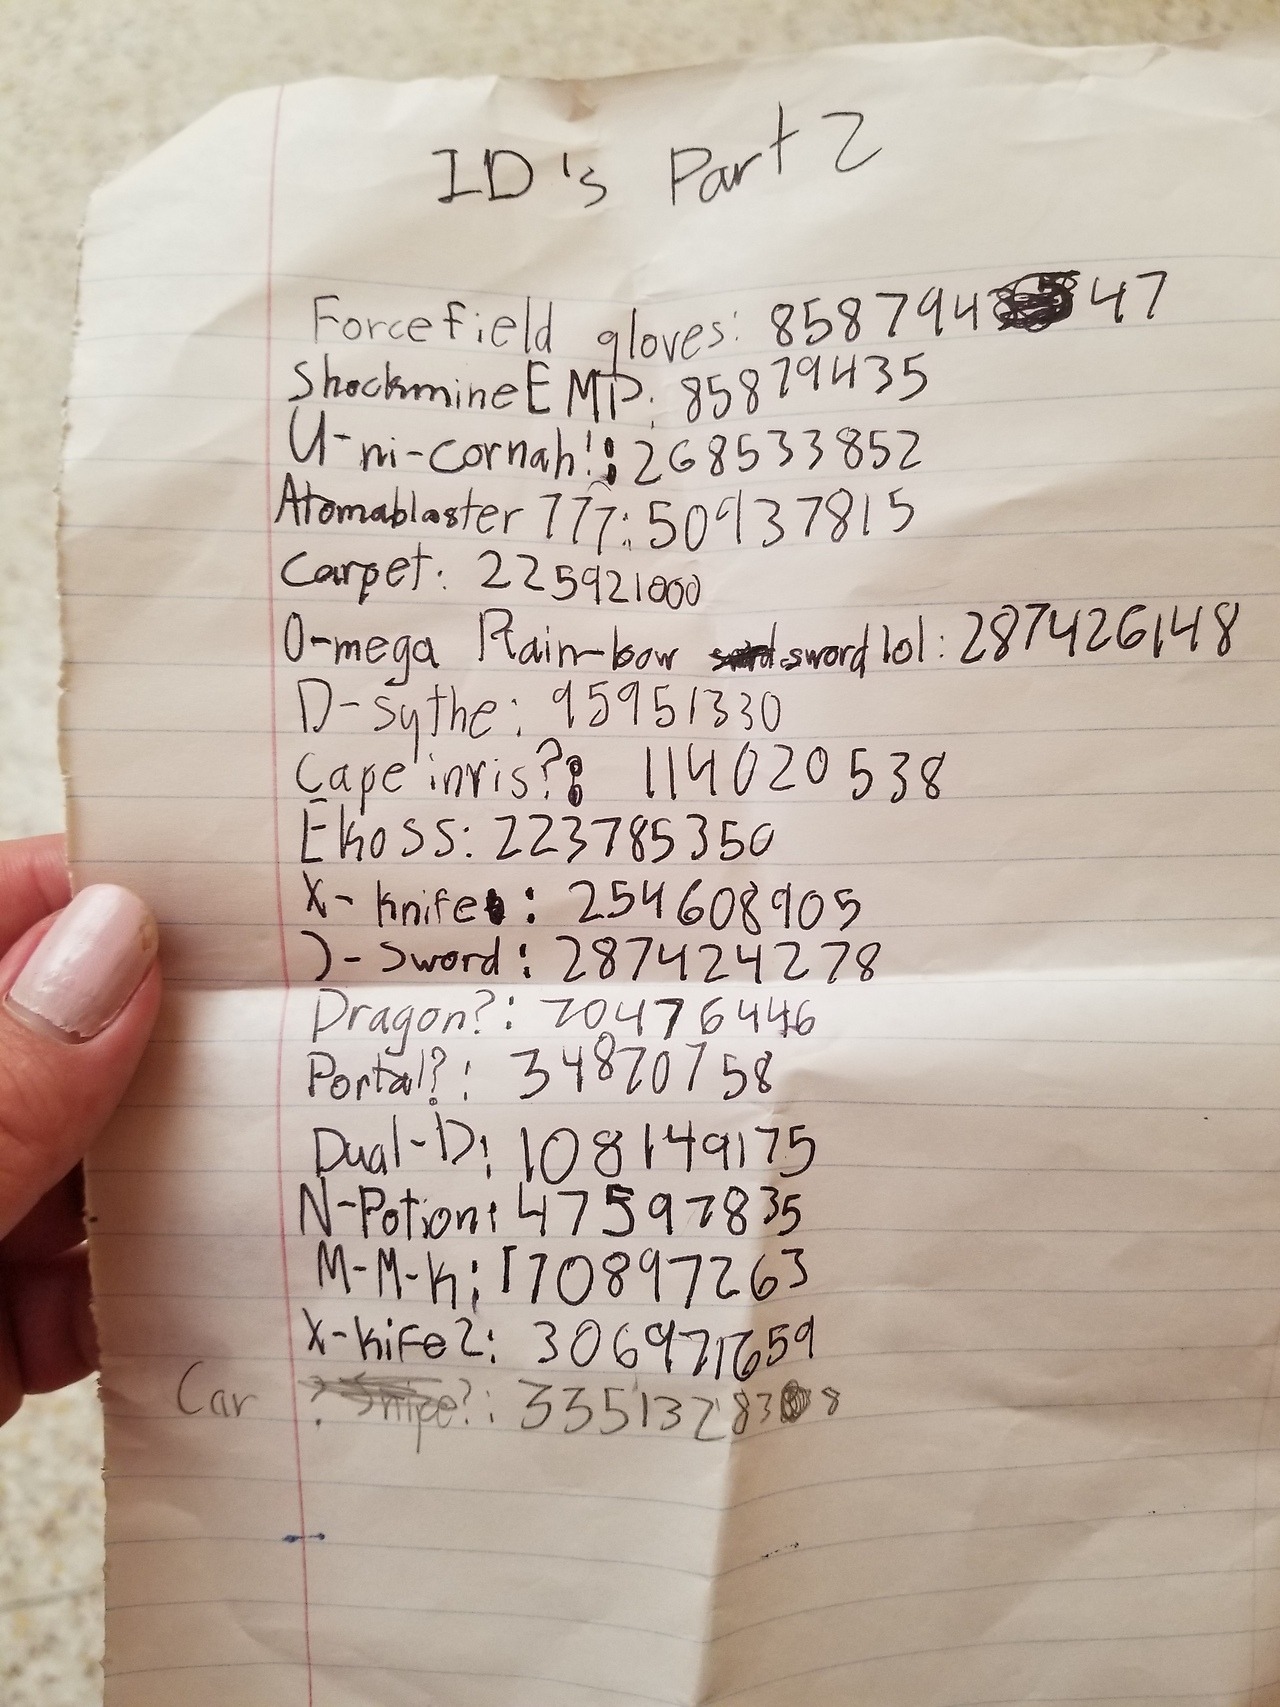 ID's Part 2
Forcefield gloves: 8587948 47
ShockmineEMP: 85879435
U-ni-cornah!: 268533852
Atomablaster 777: 50937815
Carpet: 225921000
O-mega Rain-bow sword lol: 287426148
D-sythe: 95951330
Cape invis?: 114020538
Ekoss: 223785350
X-knife: 254608905
J-sword: 287424278
Dragon?: 70476446
Portal?: 34870758
Dual-D: 108149175
N-Potion: 47597835
M-M-K: 170897263
X-kife2: 306971659
Car ? Snipe?: 33513283 8